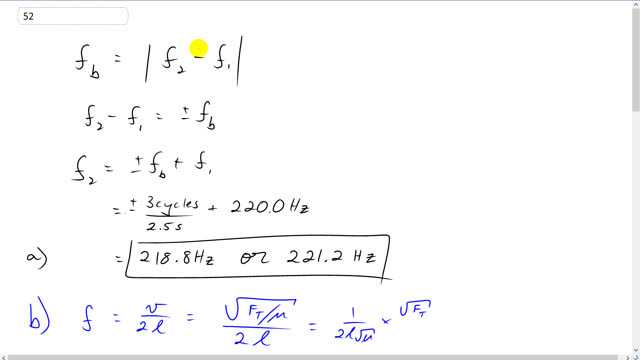 52
f_b = | f_2 - f_1 |
f_2 - f_1 = ± f_b
f_2 = ± f_b + f_1
= ± 3 cycles / 2.5 s + 220.0 Hz
a) = 218.8 Hz or 221.2 Hz
b) f = v / 2l = √(F_T/μ) / 2l = 1 / 2l√μ × √F_T